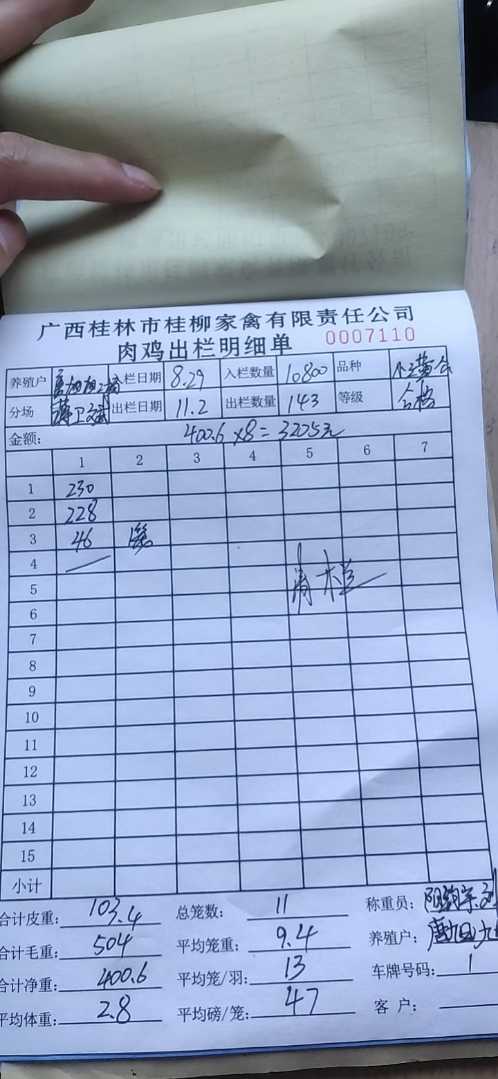 广西桂林市桂柳家禽有限责任公司
肉鸡出栏明细单 0007110
养殖户 入栏日期 8.29 入栏数量 10800 品种
分场 蒋卫斌 出栏日期 11.2 出栏数量 143 等级 合格
金额: 400.6×8=3205元
1 2 3 4 5 6 7
1 230
2 228
3 46
4
5 清栏
6
7
8
9
10
11
12
13
14
15
小计
合计皮重: 103.4 总笼数: 11 称重员:
合计毛重: 504 平均笼重: 9.4 养殖户:
合计净重: 400.6 平均笼/羽: 13 车牌号码: 1
平均体重: 2.8 平均磅/笼: 47 客户: